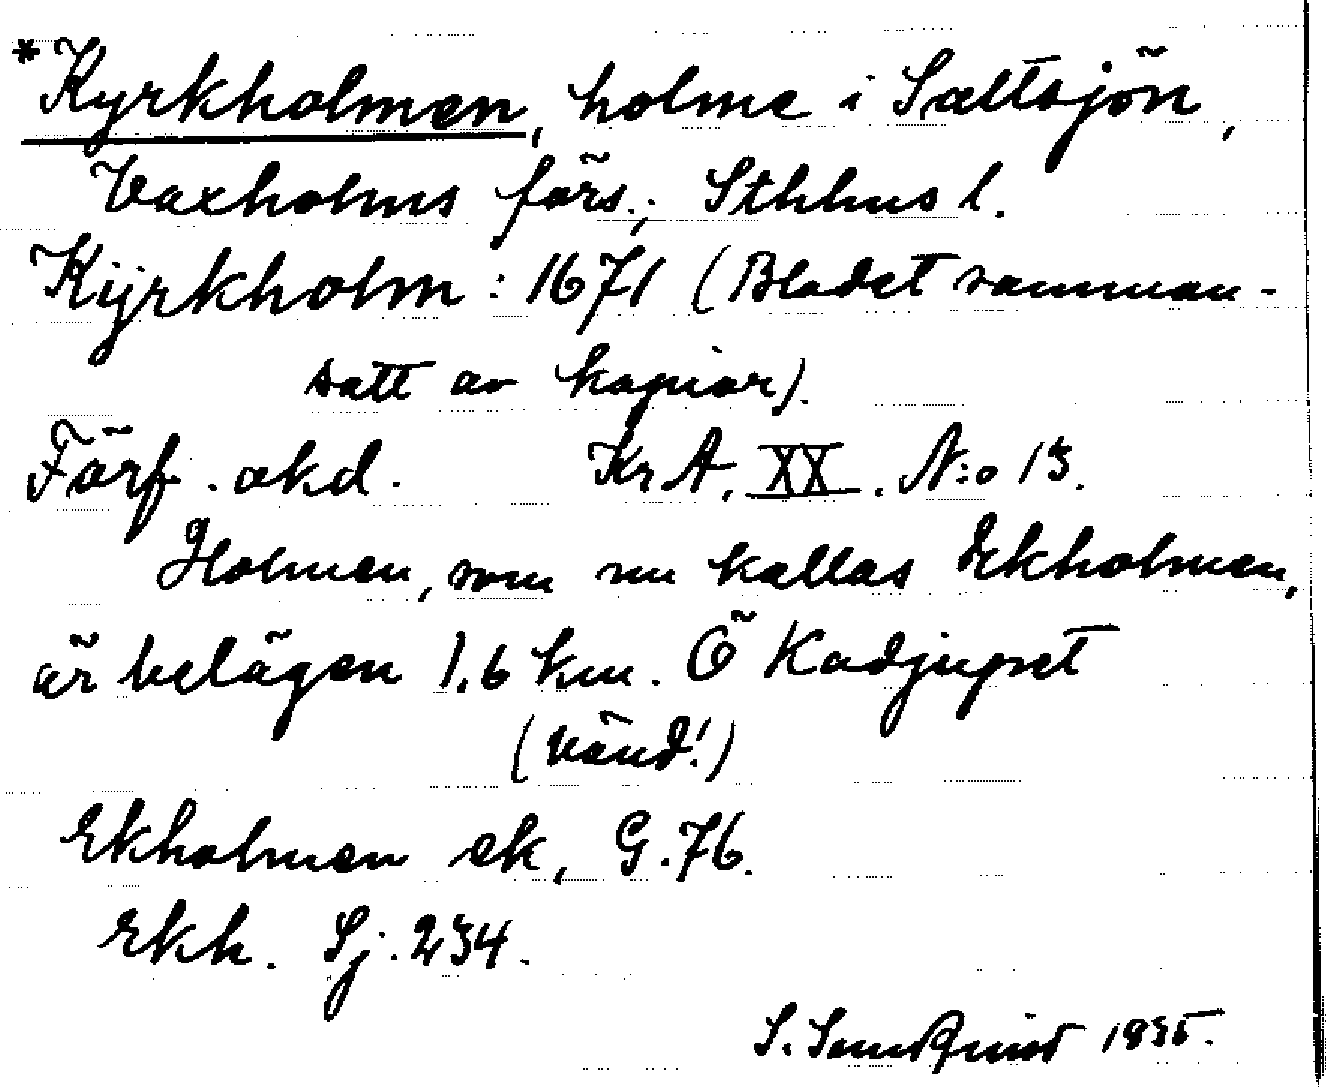 *Kyrkholmen, holme i Saltsjön,
Vaxholms förs., Sthlms l.
Kijrkholm : 1671 (Bladet samman-
satt av kopior).
Förf. okd. Kr A. XX. N:o 13.
Holmen, som nu kallas Ekholmen,
är belägen 1,6 km. Ö Kodjupet
(vänd!)
Ekholmen ek, G.76.
Ekh. Sj. 234.
S. Sundquist 1935.